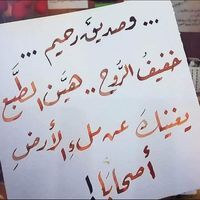 ... وصديقٌ رحيم ...
خفيفُ الرُّوح .. هيّن الطَّبع
يغنيكَ عن ملءِ الأرضِ
أصحابًا !